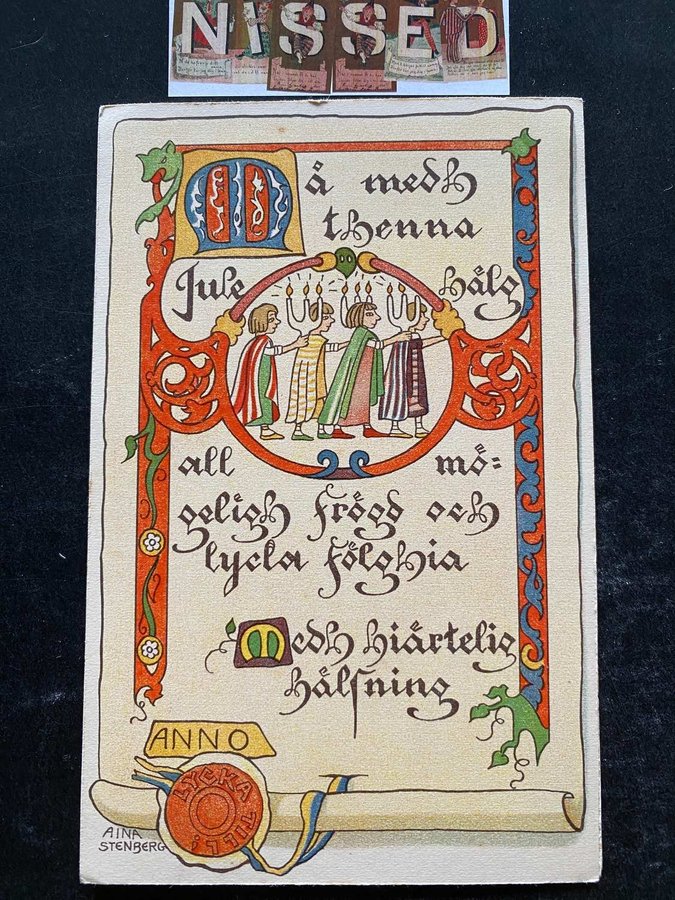 NISSED
Må medh
thenna
Jule hälg
all mö=
geligh frögd och
lycka fölghia
Medh hiärtelig
hälsning
ANNO
LYCKA TILL!
AINA
STENBERG